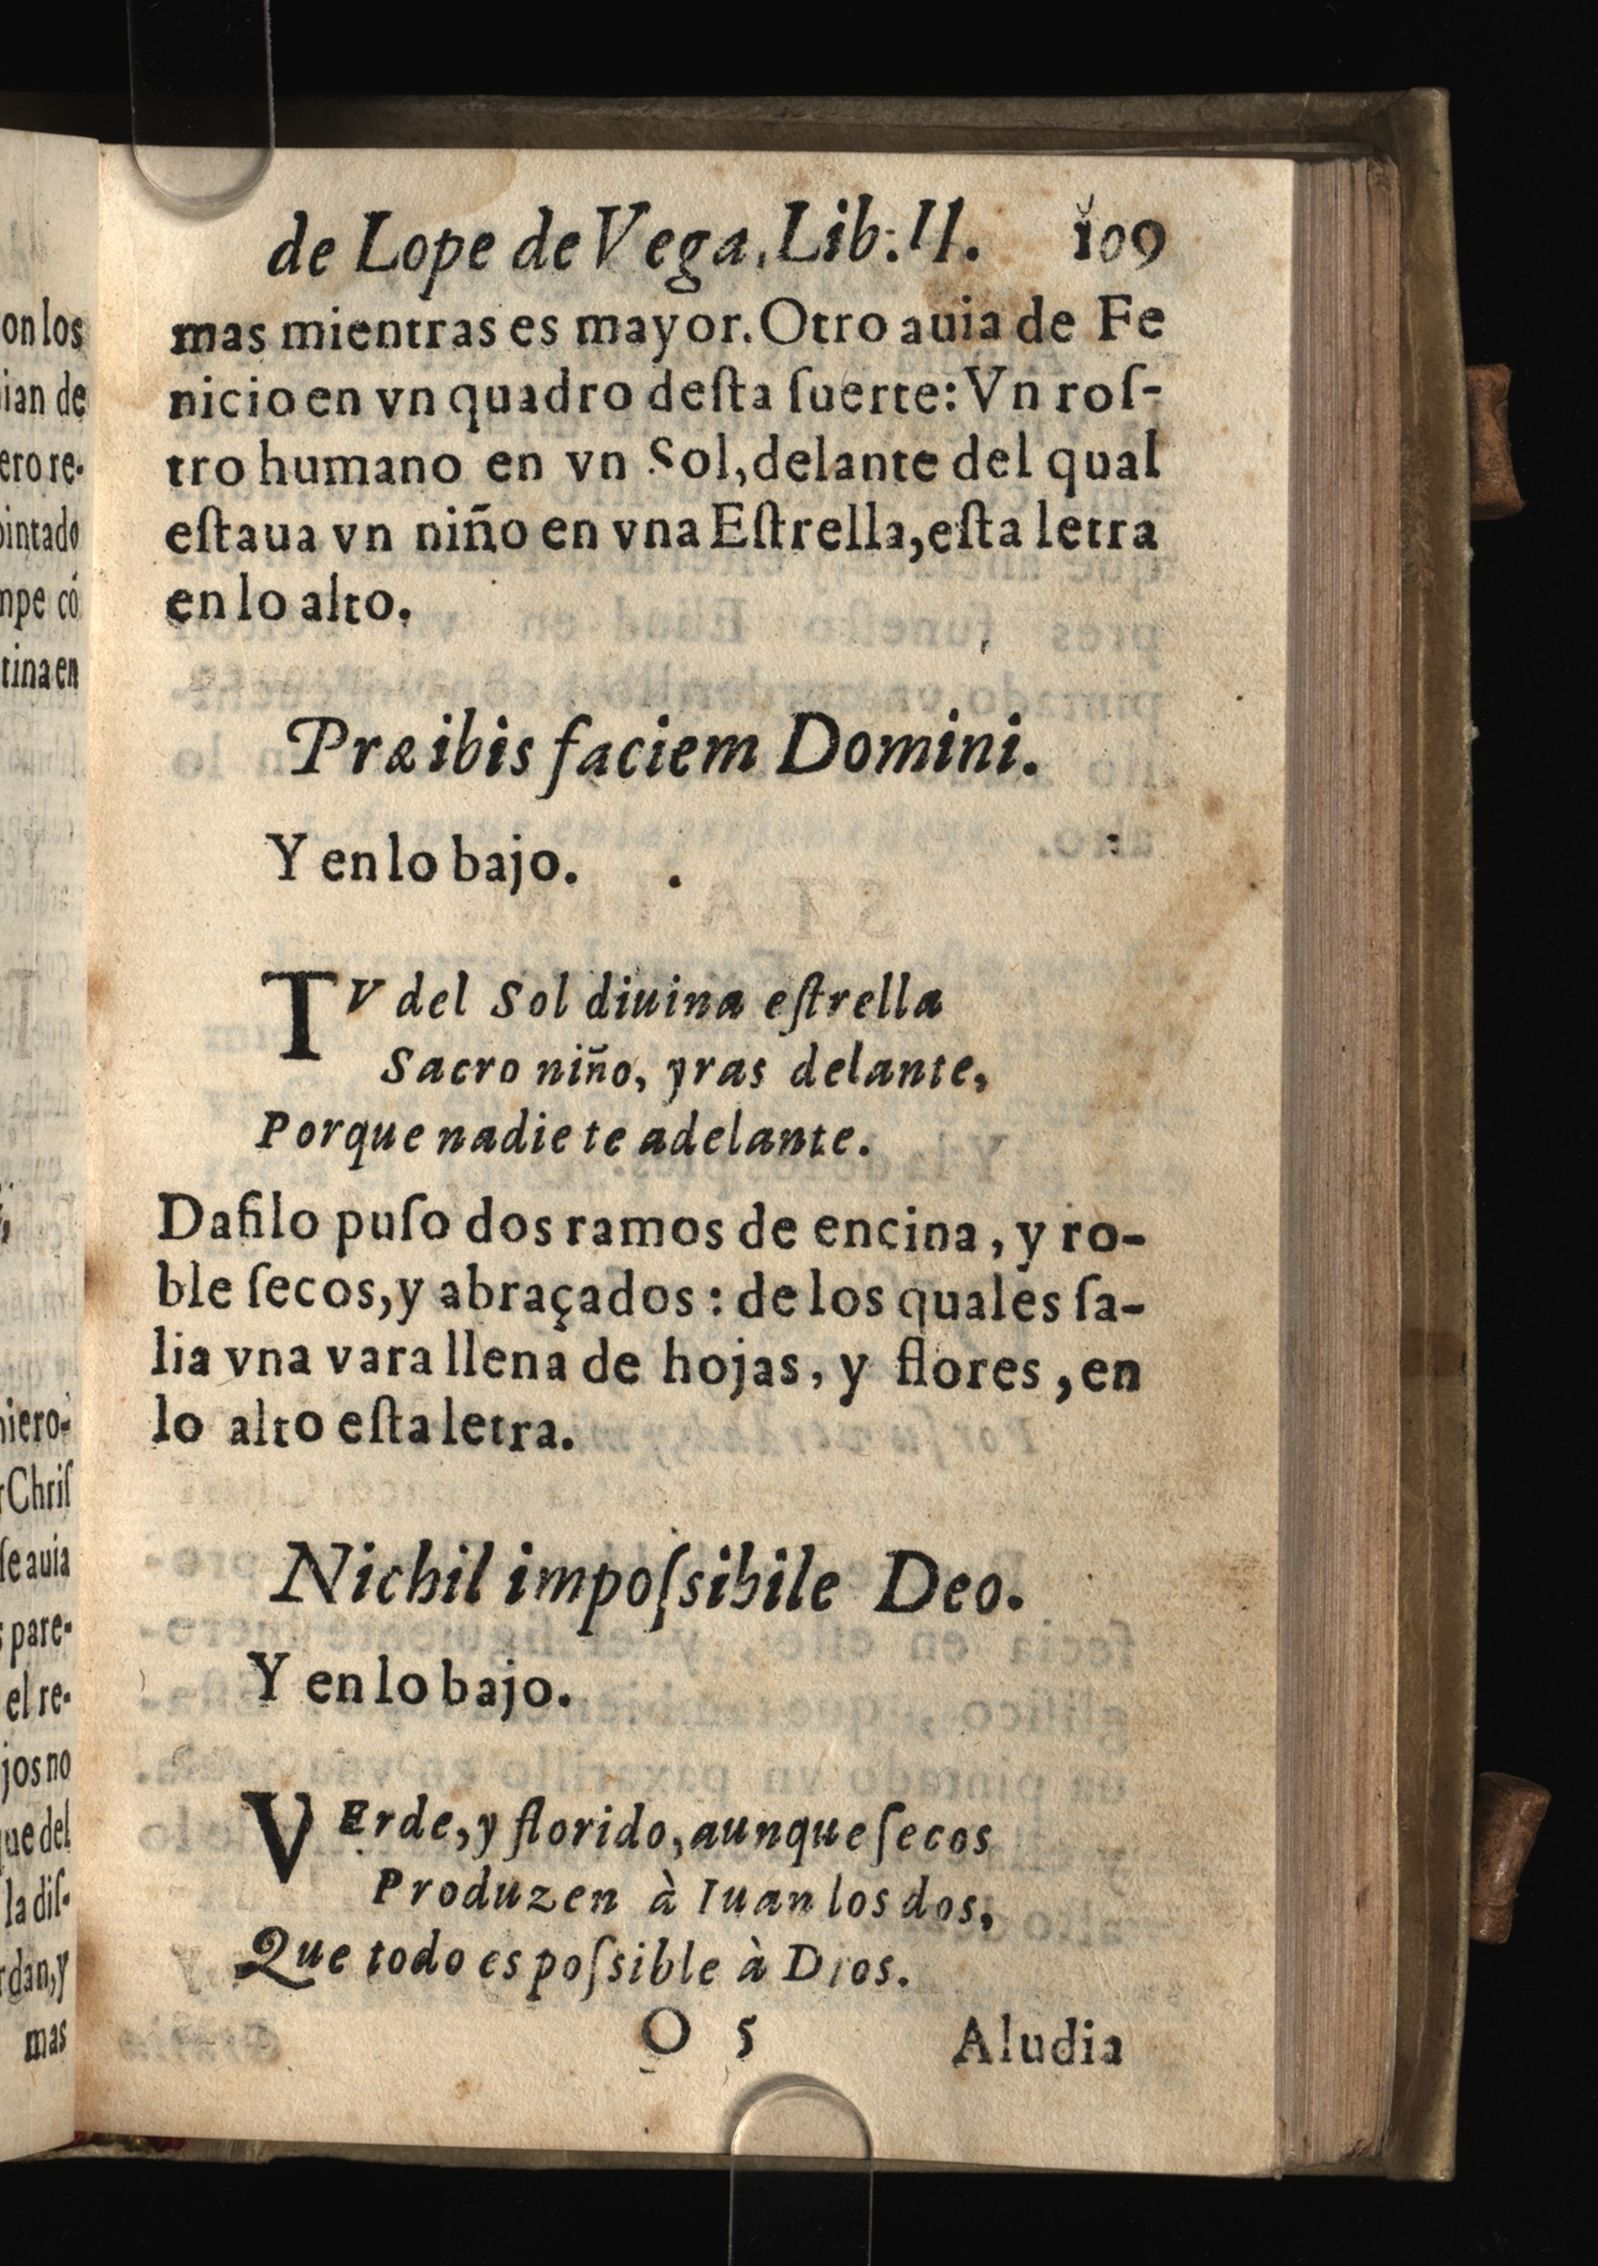 on los
ian de
ero re-
pintado
mpe có
tina en
hiero-
r Chriſ
ſe auia
s pare-
el re-
jos no
que del
la diſ-
rdan, y
mas
de Lope de Vega, Lib. II. 109
mas mientras es mayor. Otro auia de Fe
nicio en vn quadro deſta ſuerte: Vn roſ-
tro humano en vn Sol, delante del qual
eſtaua vn niño en vna Eſtrella, eſta letra
en lo alto.
Præibis faciem Domini.
Y en lo bajo.
TV del Sol diuina eſtrella
Sacro niño, yras delante,
Porque nadie te adelante.
Dafilo puſo dos ramos de encina, y ro-
ble ſecos, y abraçados: de los quales ſa-
lia vna vara llena de hojas, y flores, en
lo alto eſta letra.
Nichil impoſsibile Deo.
Y en lo bajo.
VErde, y florido, aunque ſecos
Produzen à Iuan los dos,
Que todo es poſsible à Dios.
O 5 Aludia